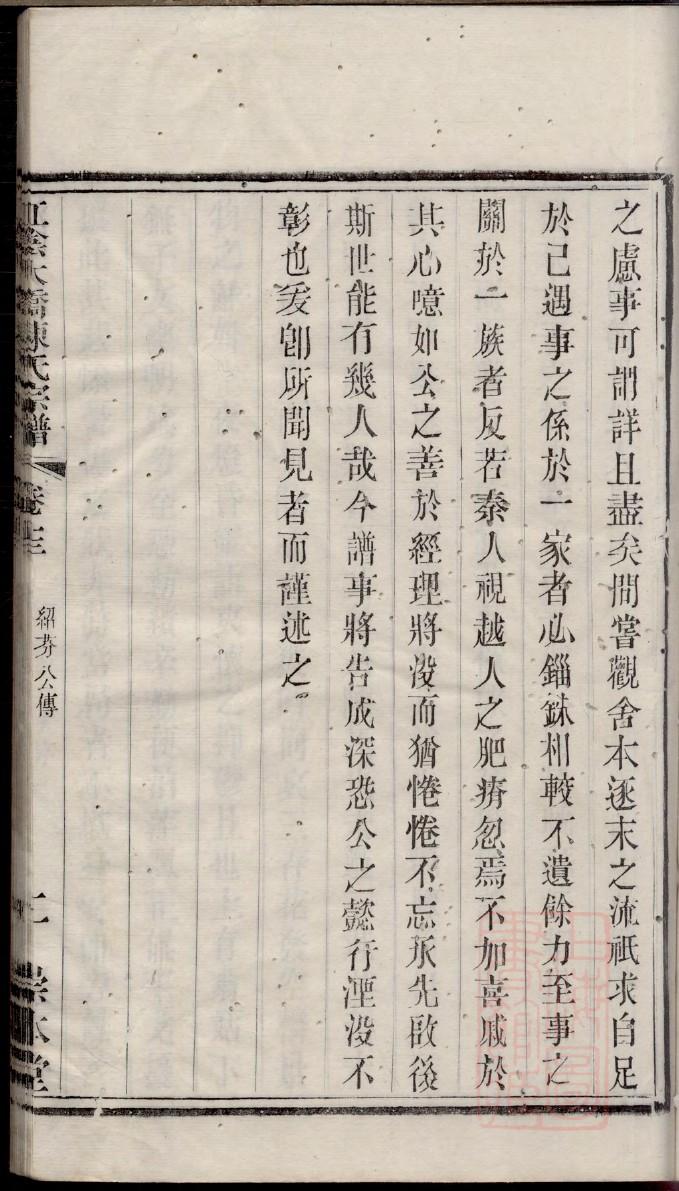 之慮事可謂詳且盡矣間嘗觀舍本逐末之流祇求自足
於己遇事之係於一家者必錙銖相較不遺餘力至事之
關於一族者反若秦人視越人之肥瘠忽焉不加喜戚於
其心噫如公之善於經理將沒而猶惓惓不忘承先啟後
斯世能有幾人哉今譜事將告成深恐公之懿行湮沒不
彰也爰卽所聞見者而謹述之
江陰大橋陳氏宗譜 卷十三 紹芬公傳 二 崇本堂